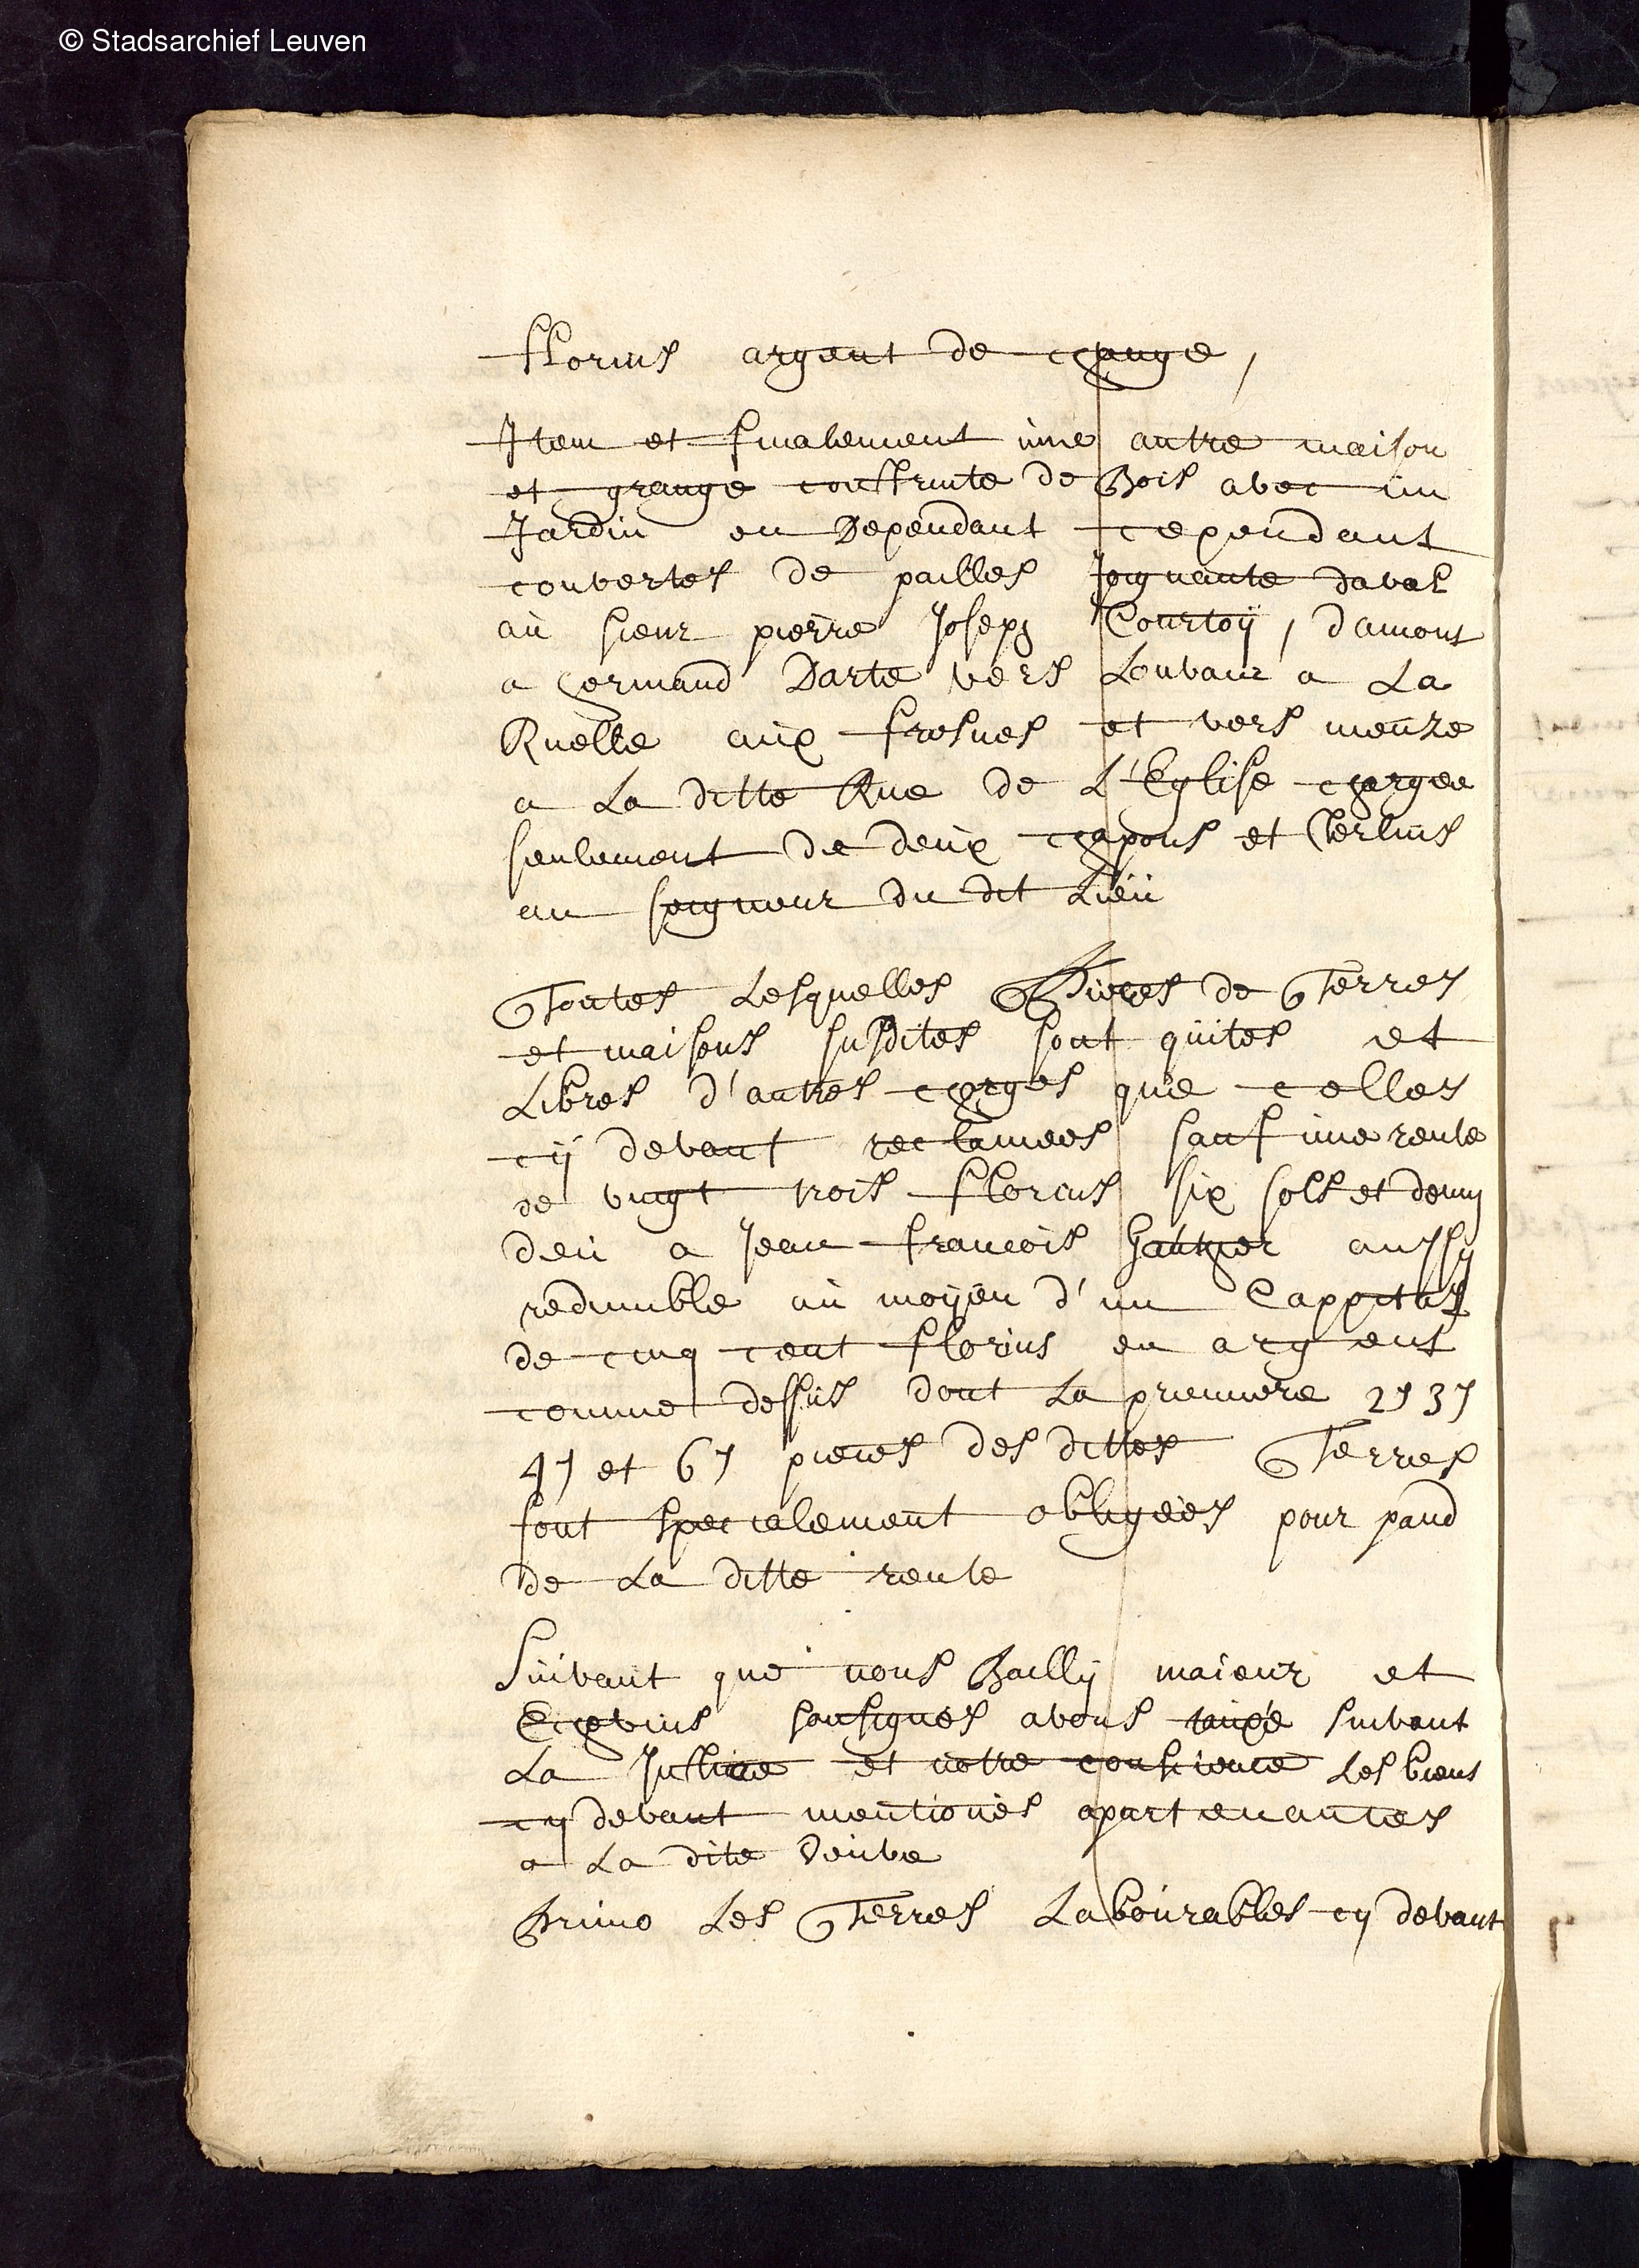 © Stadsarchief Leuven
florins argent de change,
Item et finalement une autre maison
et grange construite de Bois avec un
Jardin en Dependant cependant
couvertes de pailles Joignante daval
au sieur pierre Joseph Courtoÿ, damont
a hermand Darte vers Louvain a La
Ruelle aux fresnes et vers meuze
a La ditte Rue de L'Eglise chargee
seulement de deux chapons et
au seigneur du dit Lieu
Toutes Lesquelles Pieces de Terres
et maisons susdites sont quites et
Libres d'autres charges que celles
cÿ devant reclamees sauf une rente
de vingt trois florins six sols et demy
deu a Jean francois aussy
redimible au moÿen d'un Cappital
de cinq cent florins en argent
comme dessus dont La premiere 2e 3e
4e et 6e pieces des dittes Terres
sont specialement obligées pour pand
de La ditte rente
Suivant que nous Baillÿ maieur et
Echevins sousignes avons taixé suivant
La Justice et notre consience Les biens
cy devant mentionés apartenantes
a La dite veuve
Primo Les Terres Labourables cy devant